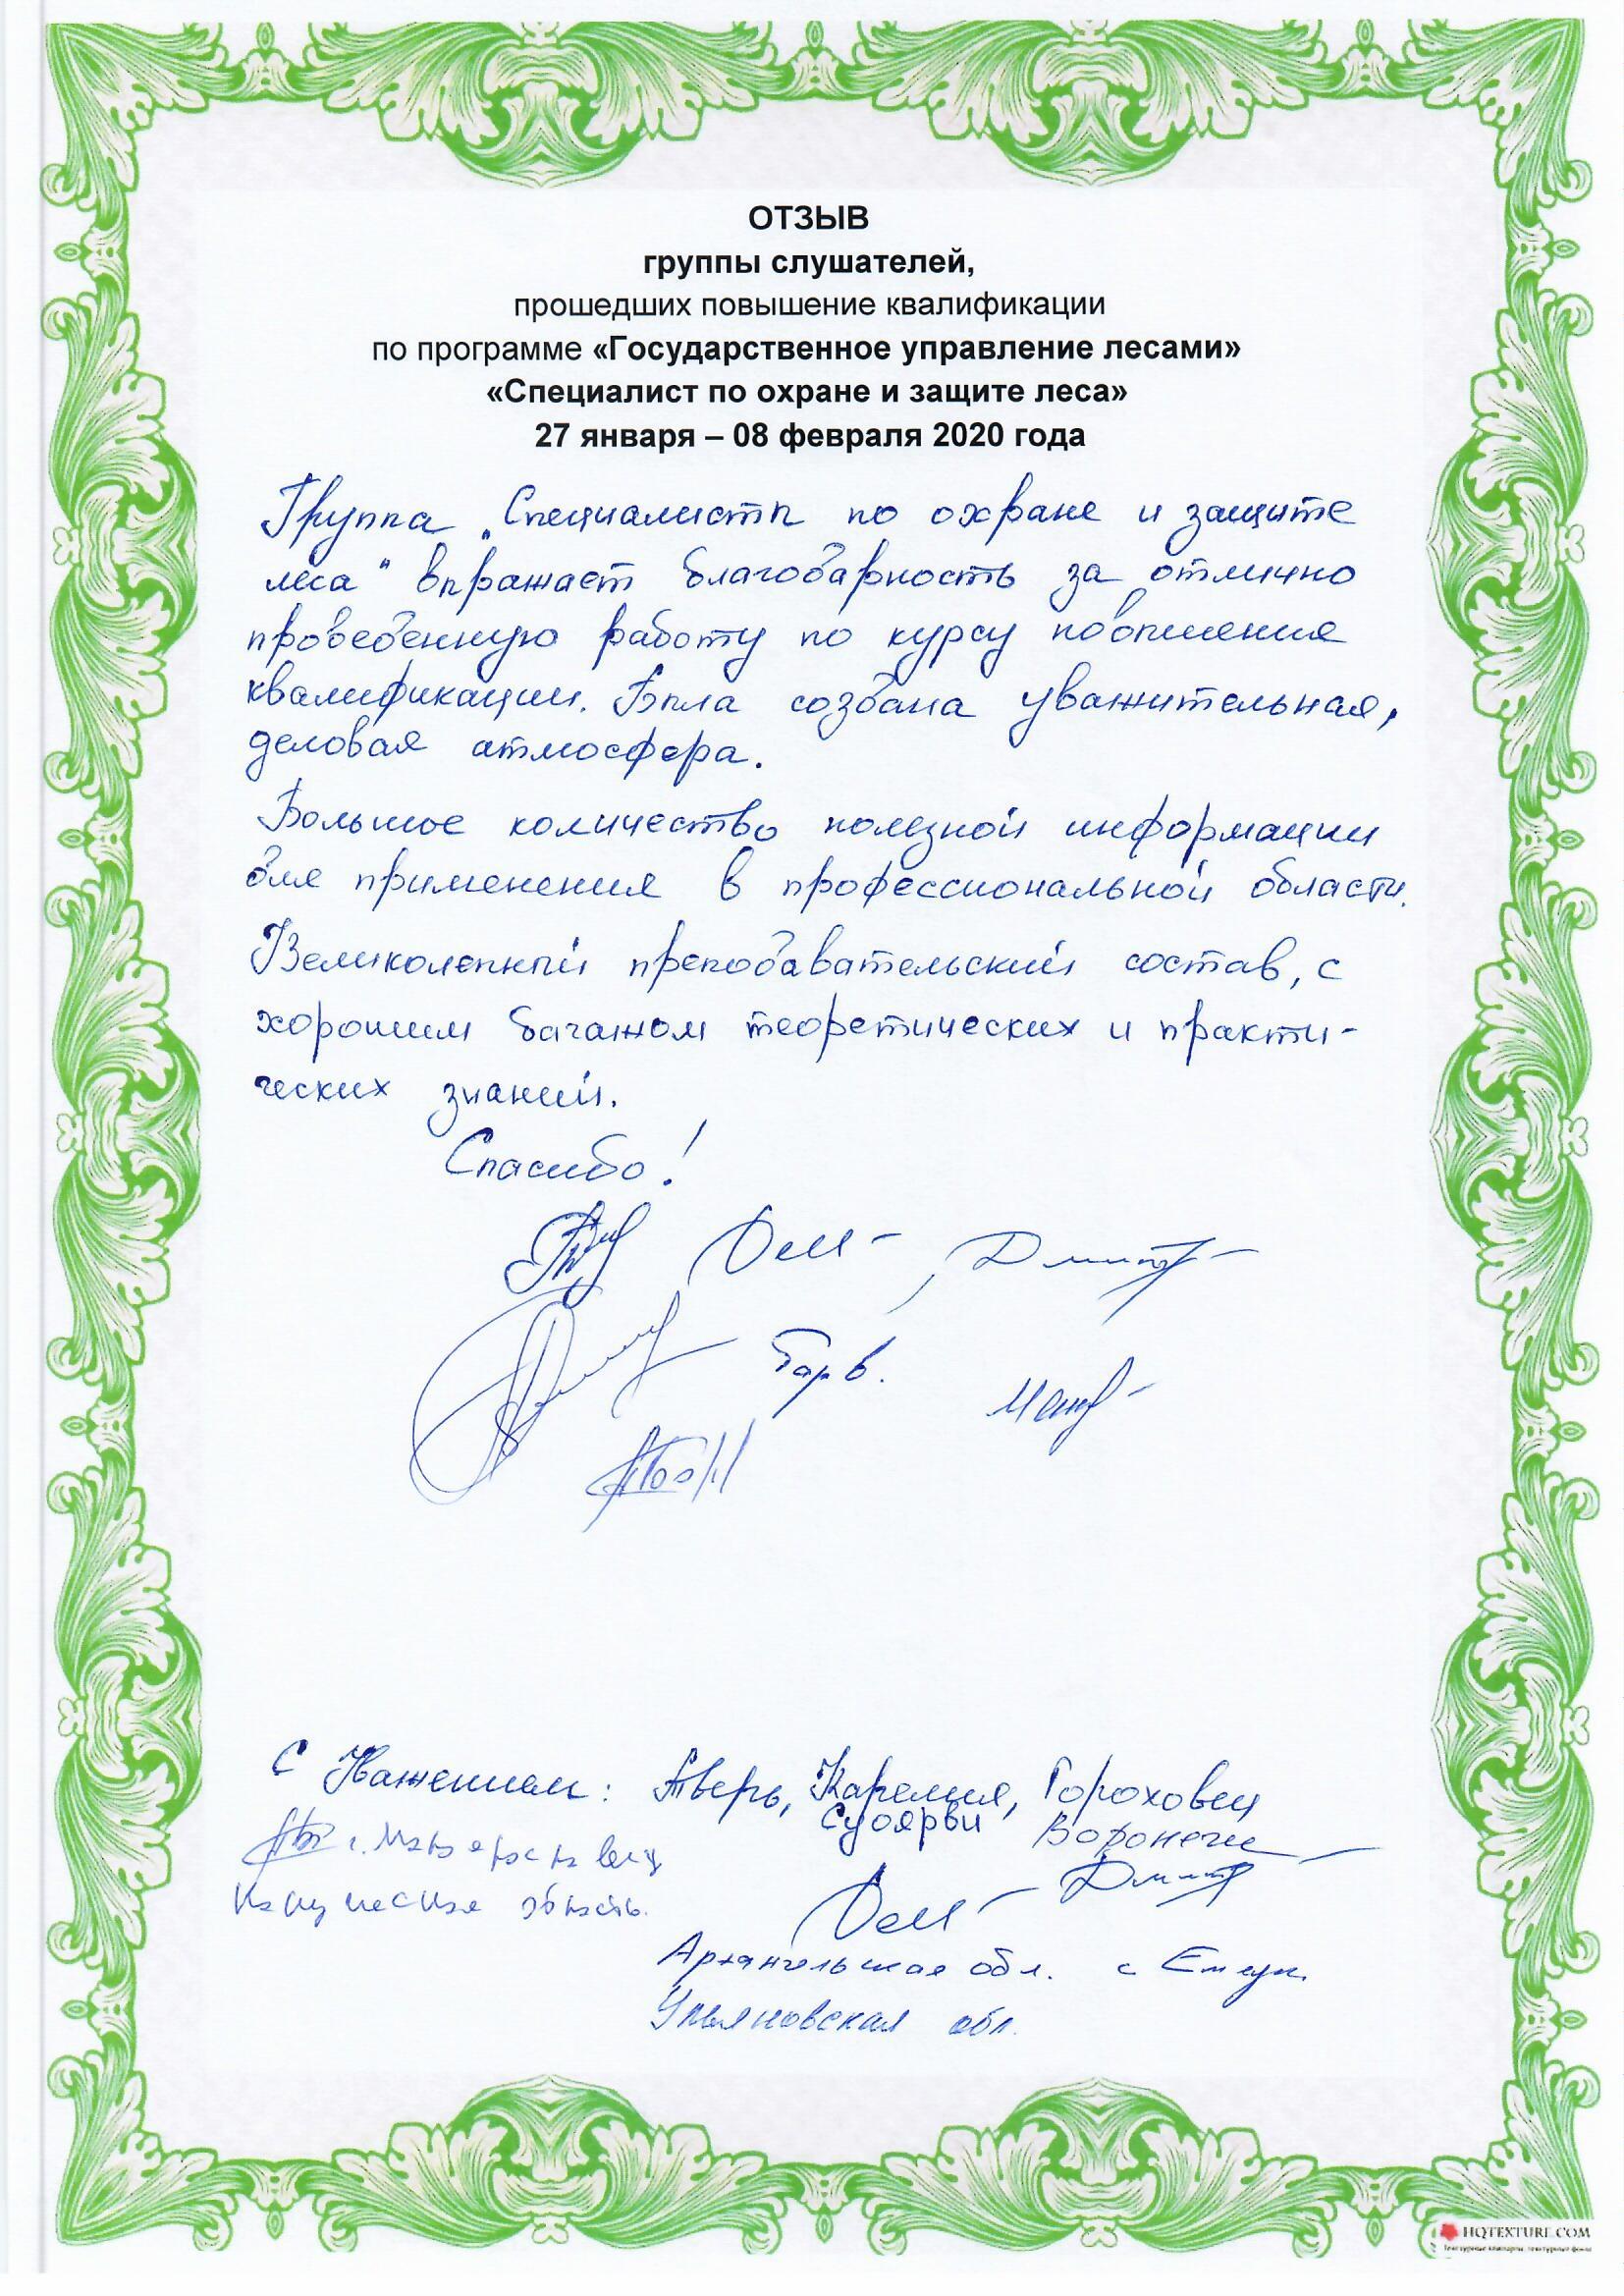 ОТЗЫВ
группы слушателей,
прошедших повышение квалификации
по программе «Государственное управление лесами»
«Специалист по охране и защите леса»
27 января – 08 февраля 2020 года
Группа „Специалисты по охране и защите
леса“ выражает благодарность за отлично
проведенную работу по курсу повышения
квалификации. Была создана уважительная,
деловая атмосфера.
Большое количество полезной информации
для применения в профессиональной области.
Великолепный преподавательский состав, с
хорошим багажом теоретических и практи-
ческих знаний.
Спасибо!
С Уважением: Тверь, Карелия, Гороховец
Суоярви Воронеж
г. Малоярославец
Калужская область.
Архангельская обл. с
Ульяновская обл.
HQTEXTURE.COM